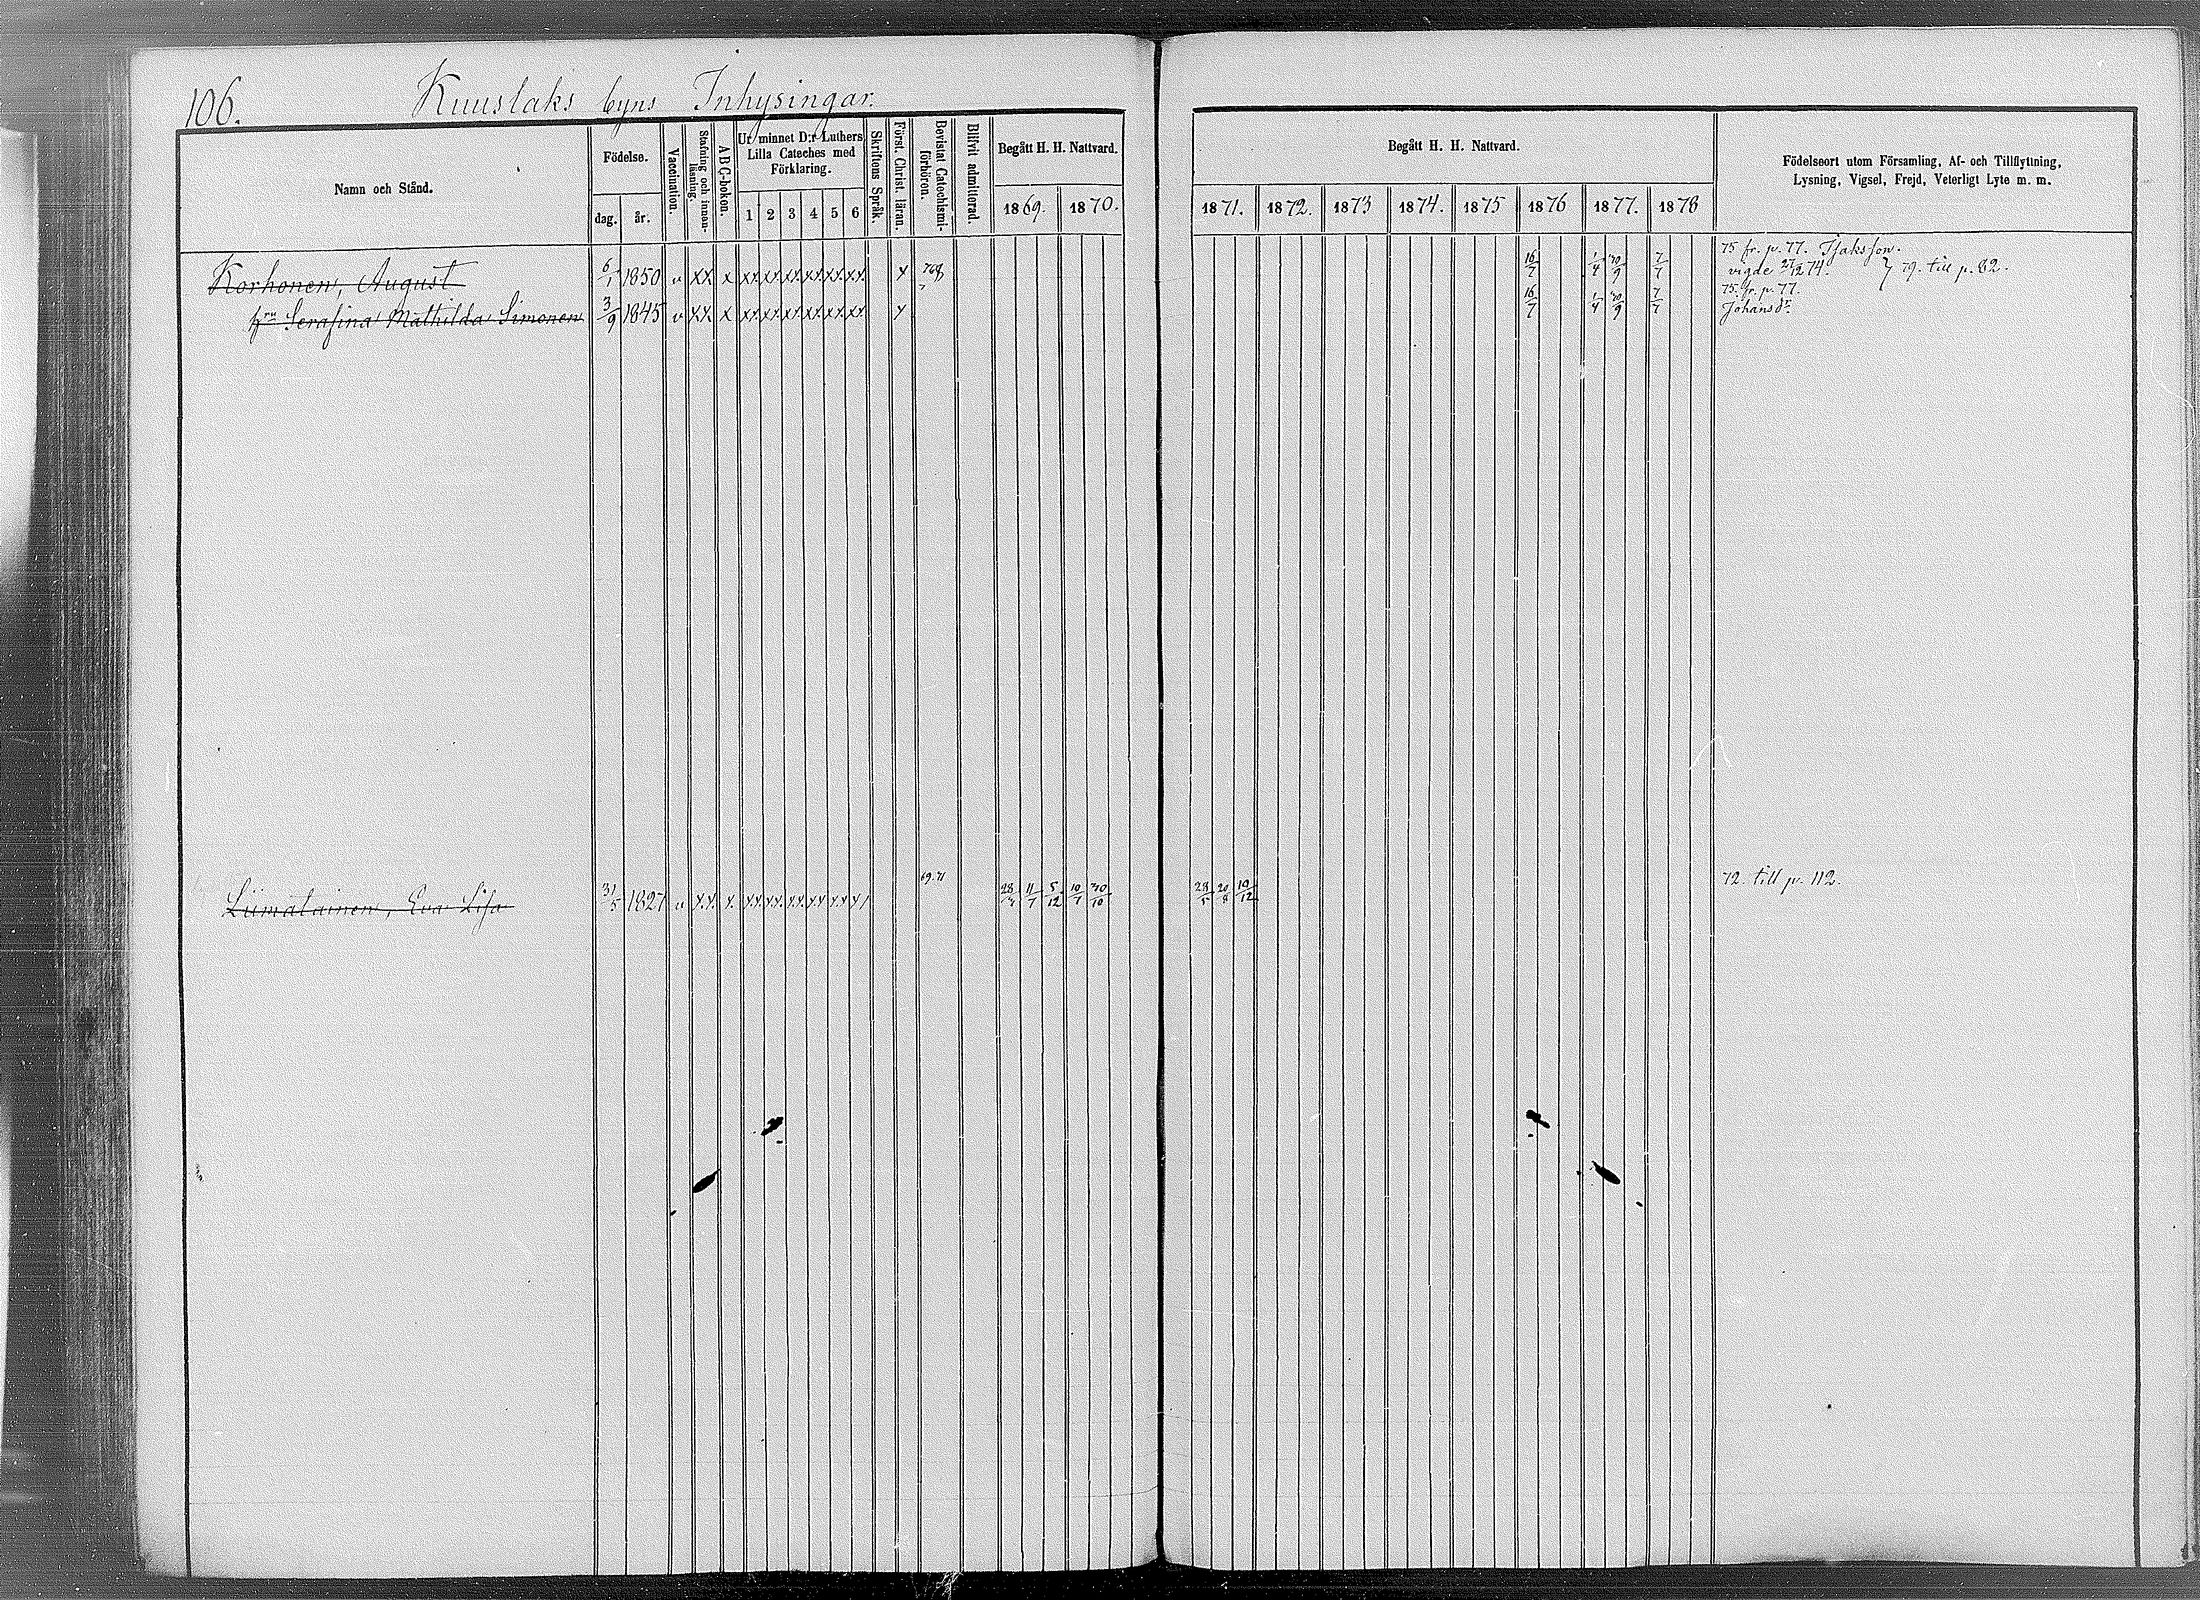 106.
Kuuslaks byns Inhysingar.
Namn och Stånd.
Födelse.
dag. år.
Vaccination.
Stafning och innan-läsning.
ABC-boken.
Ur minnet D:r Luthers
Lilla Cateches med
Förklaring.
1 2 3 4 5 6
Skriftens Språk.
Först. Christ. läran.
Bevistat Catechismi-
förhören.
Blifvit admitterad.
Begått H. H. Nattvard.
1869. 1870.
Begått H. H. Nattvard.
1871. 1872. 1873 1874. 1875 1876 1877. 1878
Födelseort utom Församling, Af- och Tillflyttning,
Lysning, Vigsel, Frejd, Veterligt Lyte m. m.
Korhonen, August 6/1 1850 v xx x xx xx xx xx xx xx x 16/7 1/4 30/9 7/7 75 fr. p. 77. Isaksson.
vigde 27/12 74. 79. till p. 82.
hru Serafina Mathilda Simonen 3/9 1845 v xx x xx xx xx xx xx xx x 16/7 1/4 30/9 7/7 75. fr. p. 77.
Johansdr
Liimatainen, Eva Lisa 31/5 1827 v xx x xx xx xx xx xx x/ 69.71 28/4 11/7 5/12 10/7 30/10 28/5 20/8 10/12 72. till p. 112.